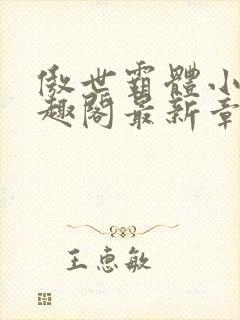 傲世霸體小
趣閣最新章
王惠敏